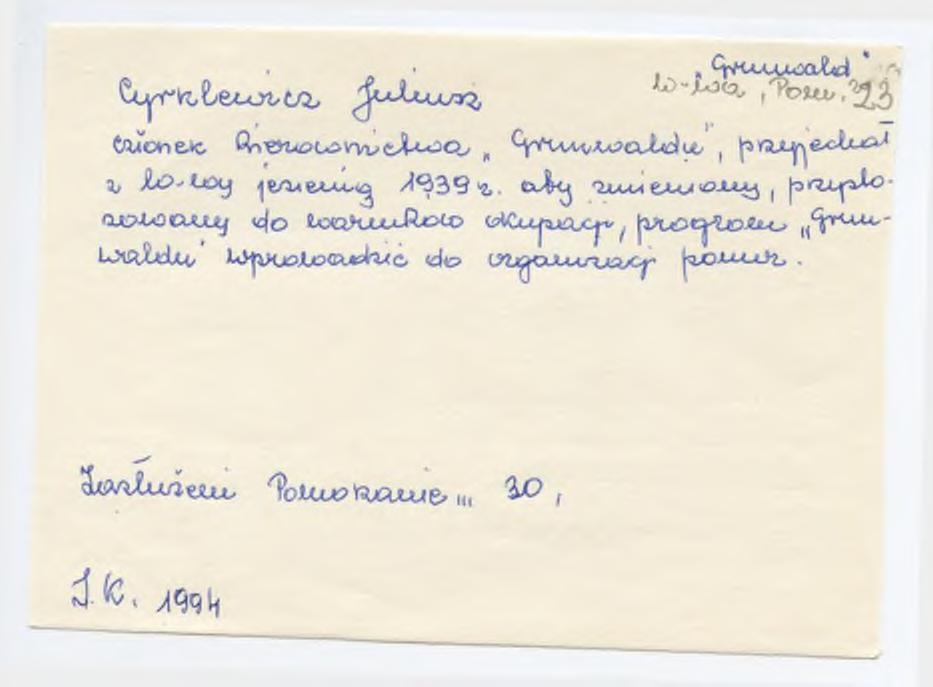 „Grunwald"
W-wa, Pom. 23
Cyrklewicz Juliusz
członek kierownictwa „Grunwaldu", przyjechał
z W-wy jesienią 1939 r. aby zmieniony, przysto-
sowany do warunków okupacji, program „Grun-
waldu" wprowadzić do organizacji pomor.
Zasłużeni Pomorzanie... 30,
I.K. 1994